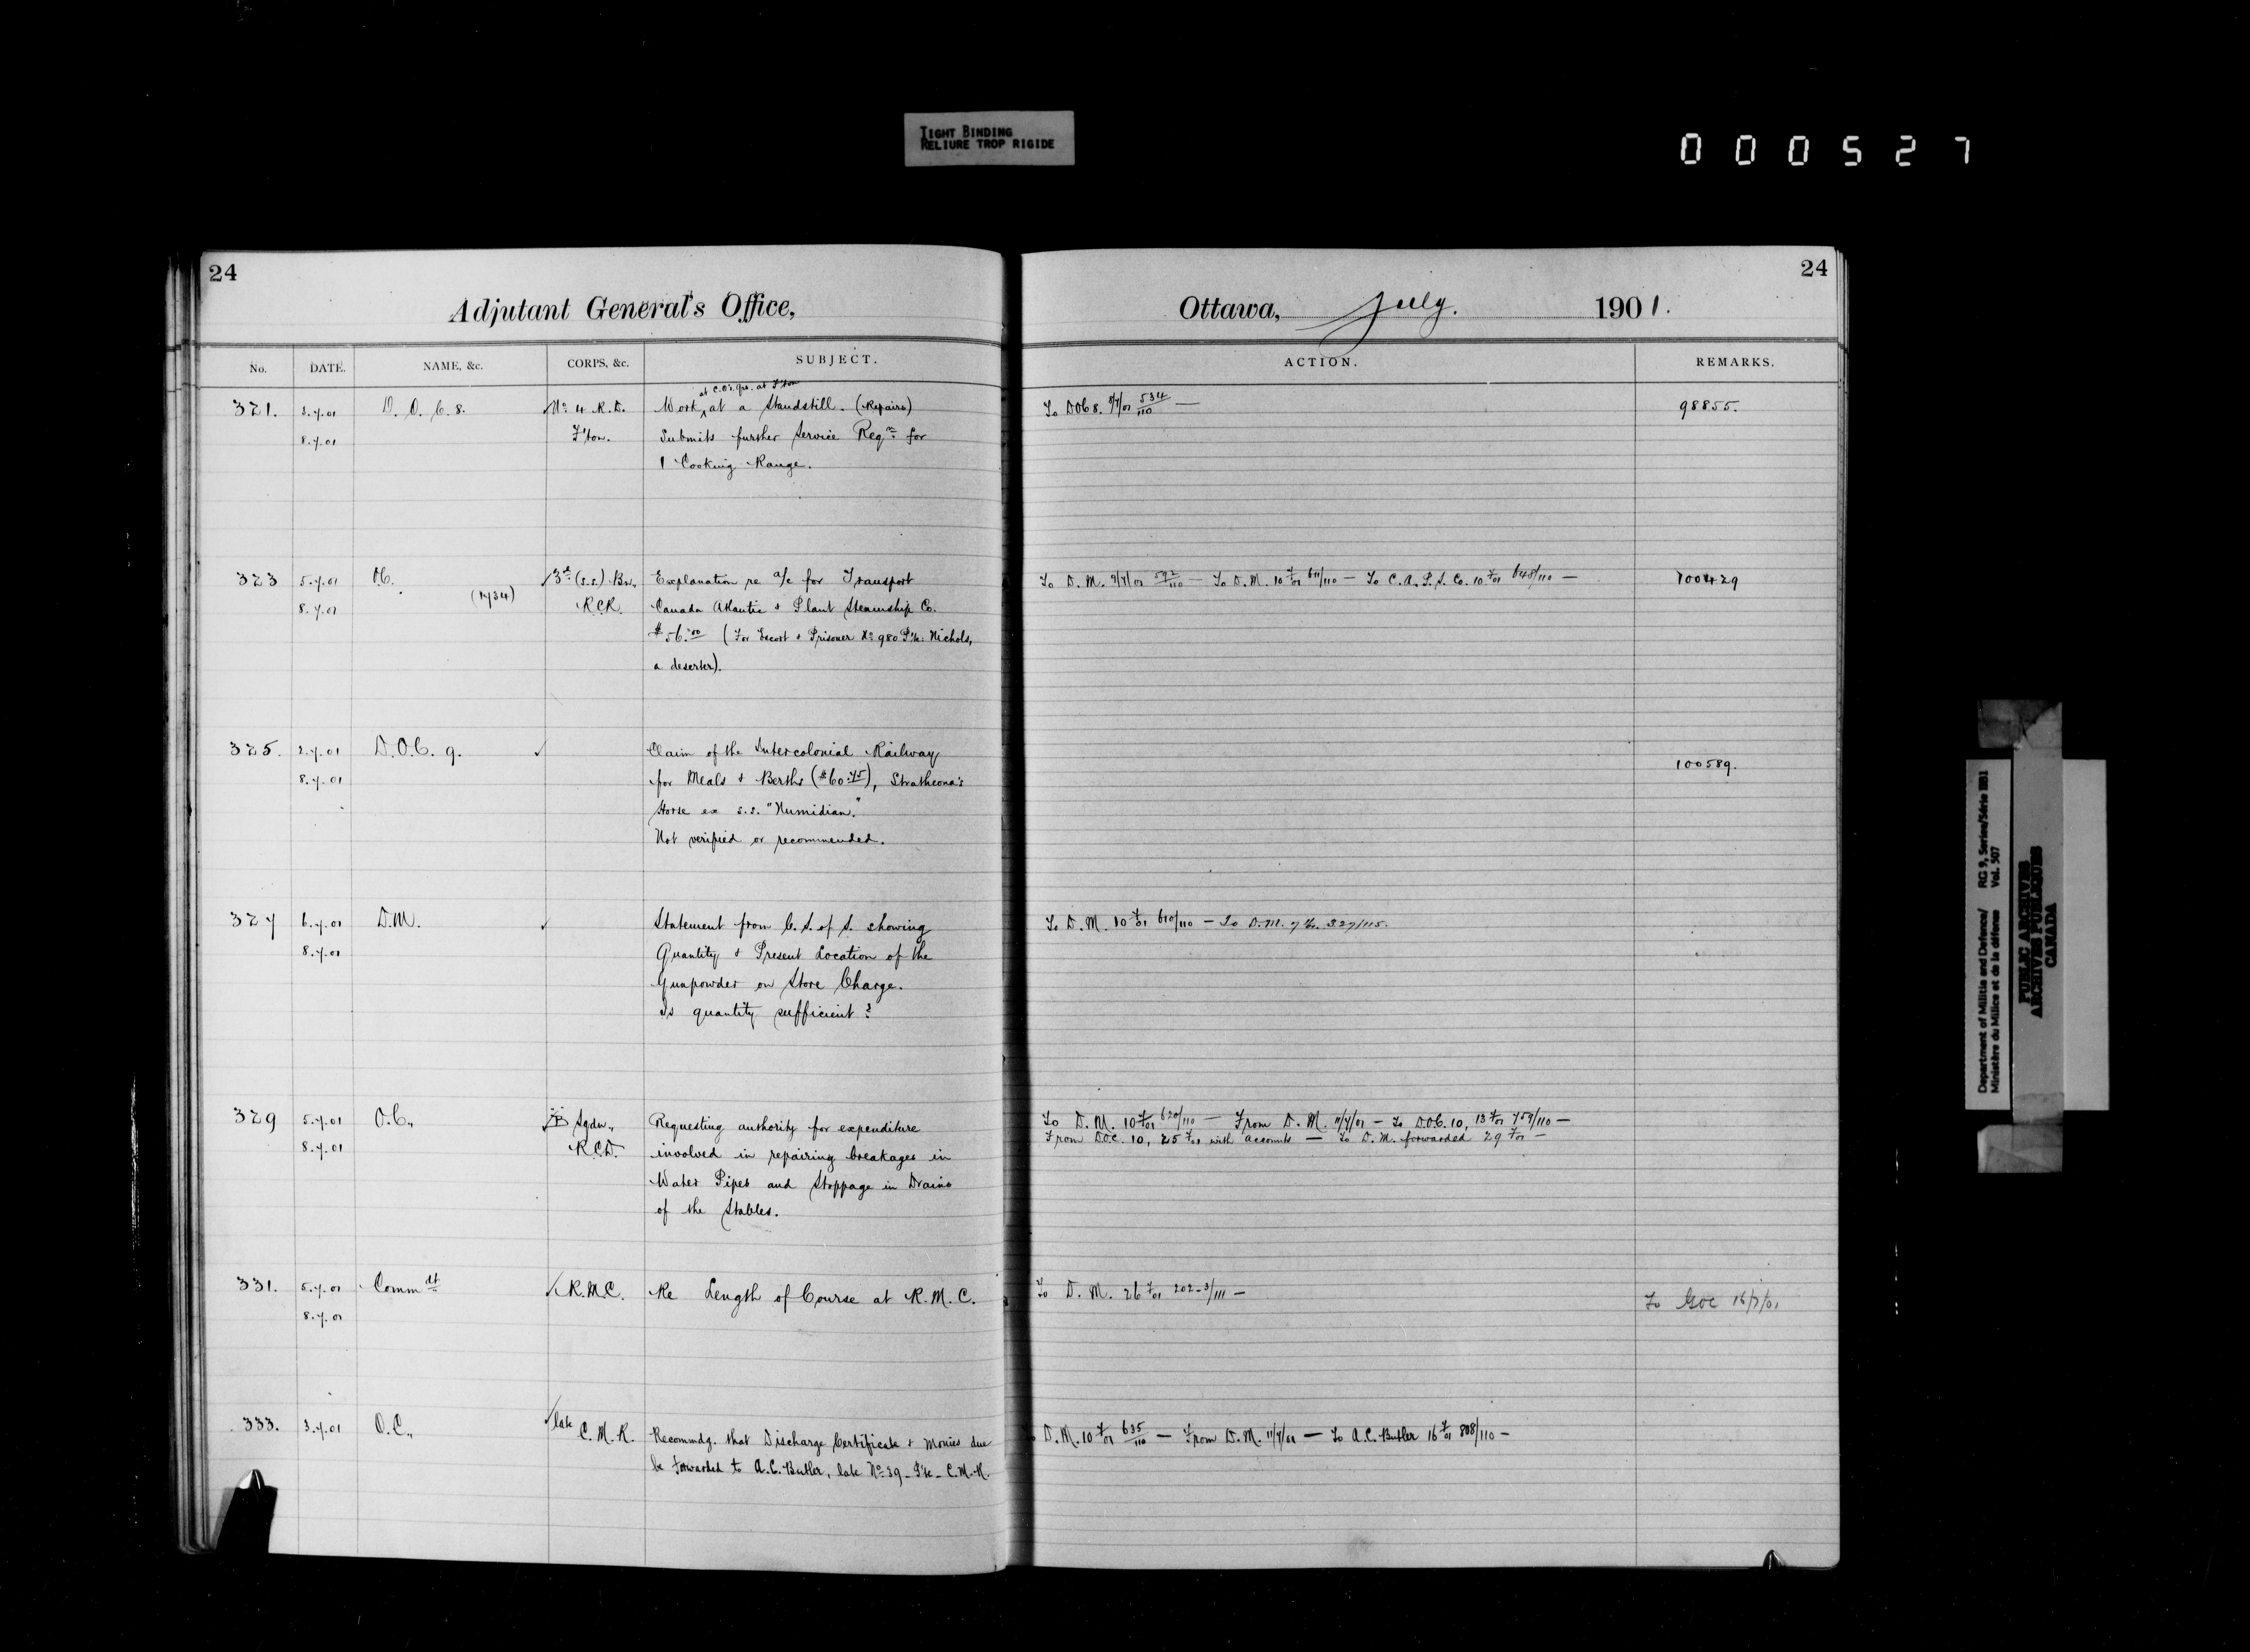 TIGHT BINDING
RELIURE TROP RIGIDE
000527
24
Adjutant General's Office,
No. DATE. NAME, &c. CORPS, &c. SUBJECT.
at C.O's. Qrs. at F'ton
321. 3.7.01 D.O.C. 8. No 4 R.D. Work, at a Standstill. (Repairs)
8.7.01 F'ton. Submits further Service Reqn for
1 Cooking Range.
323 5.7.01 O.C. 3rd (s.s.) Bn., Explanation re a/c for Transport
8.7.01 (1734) R.C.R. Canada Atlantic & Plant Steamship Co.
$56.00 (For Escort & Prisoner No 980 Pte. Nichols,
a deserter).
325. 2.7.01 D.O.C. 9. Claim of the Intercolonial Railway
8.7.01 for Meals & Berths ($60.75), Strathcona's
Horse ex s.s. "Numidian."
Not verified or recommended.
327 6.7.01 D.M. Statement from C.S. of S. showing
8.7.01 Quantity & Present Location of the
Gunpowder on Store Charge.
Is quantity sufficient?
329 5.7.01 O.C., "B" Sqdn., Requesting authority for expenditure
8.7.01 R.C.D. involved in repairing breakages in
Water Pipes and Stoppage in Drains
of the Stables.
331. 5.7.01 Commdt R.M.C. Re Length of Course at R.M.C.
8.7.01
333. 3.7.01 O.C., late C.M.R. Recommdg. that Discharge Certificate & Monies due
be forwarded to A.C. Butler, late No. 39 - Pte - C.M.R.
24
Ottawa, July. 1901.
ACTION. REMARKS.
To DOC 8. 8/7/01 534/110 — 98855.
To D.M. 9/7/01 592/110 — To D.M. 10 7/01 611/110 — To C.A.P.S. Co. 10 7/01 648/110 — 100429
100589.
To D.M. 10 7/01 610/110 — To D.M. 327/115.
To D.M. 10 7/01 620/110 — From D.M. 11/7/01 — To D.O.C. 10, 13 7/01 759/110 —
From D.O.C. 10, 25 7/01 with accounts — To D.M. forwarded 29 7/01 —
To D.M. 26 7/01 202-3/111 —
To GOC 16/7/01
D.M. 10 7/01 635/110 — From D.M. 11/7/01 — To A.C. Butler 16 7/01 808/110 —
Department of Militia and Defence/ RG 9, Series/Série IIB1
Ministère du Milice et de la défense Vol. 507
PUBLIC ARCHIVES
ARCHIVES PUBLIQUES
CANADA